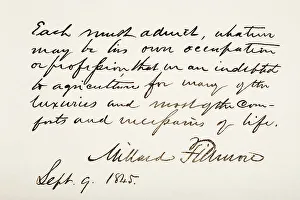 Each must admit, whatever
may be his own occupation
or profession that we are indebted
to agriculture for many of the
luxuries and most of the com-
forts and necessaries of life.
Millard Fillmore
Sept. 9. 1845.